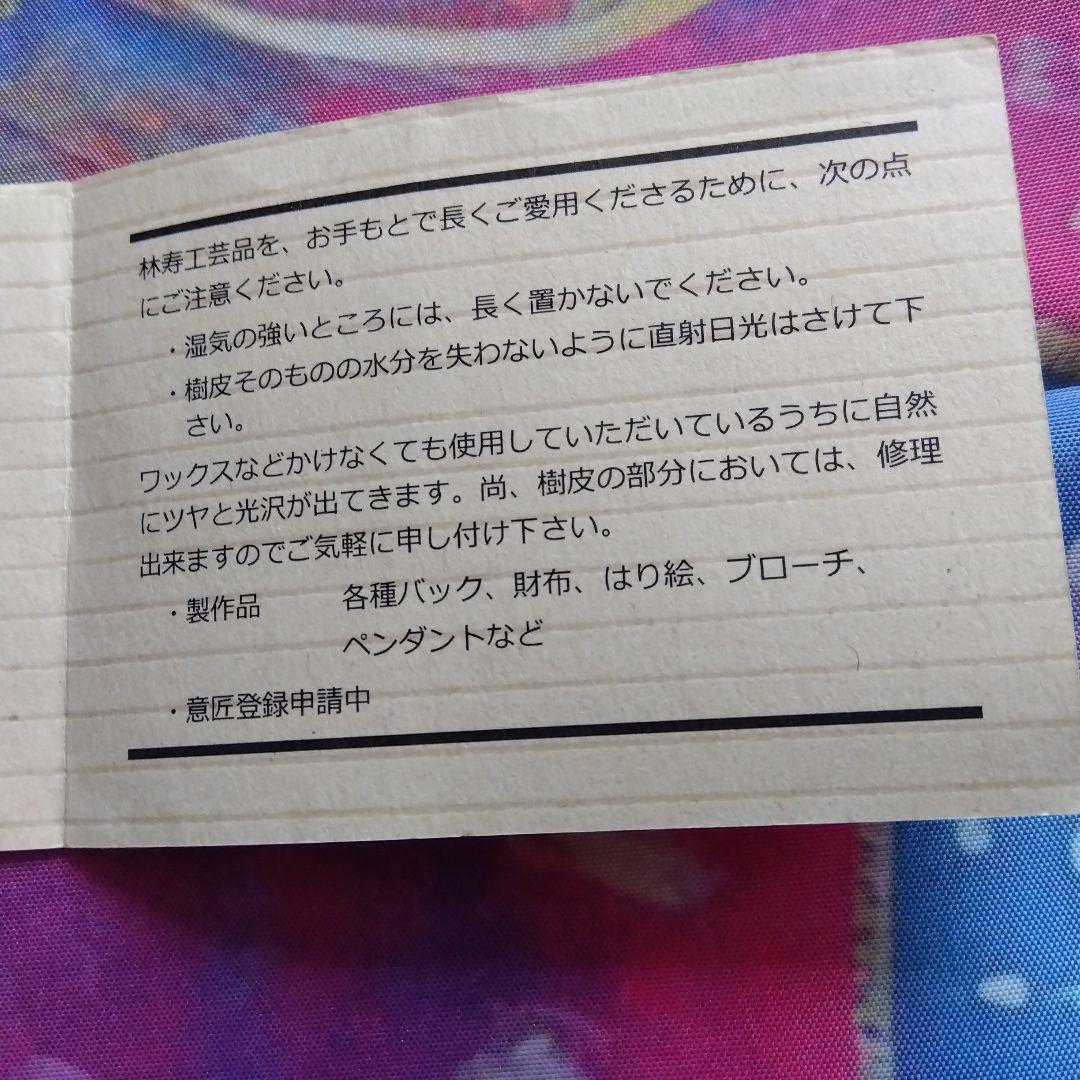 林寿工芸品を、お手もとで長くご愛用くださるために、次の点
にご注意ください。
・湿気の強いところには、長く置かないでください。
・樹皮そのものの水分を失わないように直射日光はさけて下
さい。
ワックスなどかけなくても使用していただいているうちに自然
にツヤと光沢が出てきます。尚、樹皮の部分においては、修理
出来ますのでご気軽に申し付け下さい。
・製作品 各種バック、財布、はり絵、ブローチ、
ペンダントなど
・意匠登録申請中